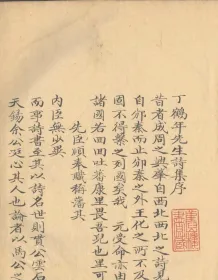 丁鶴年先生詩集序
昔者成周之興肇自西北西北之詩見
自邠秦而止邠秦之外王化之所不及
固不得槩之列國矣我　元受命亦由
諸國若回回吐蕃康里畏吾兒也里可
先臣順奉職稱藩其
内臣無少異
而邪詩書至其以詩名世則貫公雲石
天錫余公廷心其人也論者以馬公之